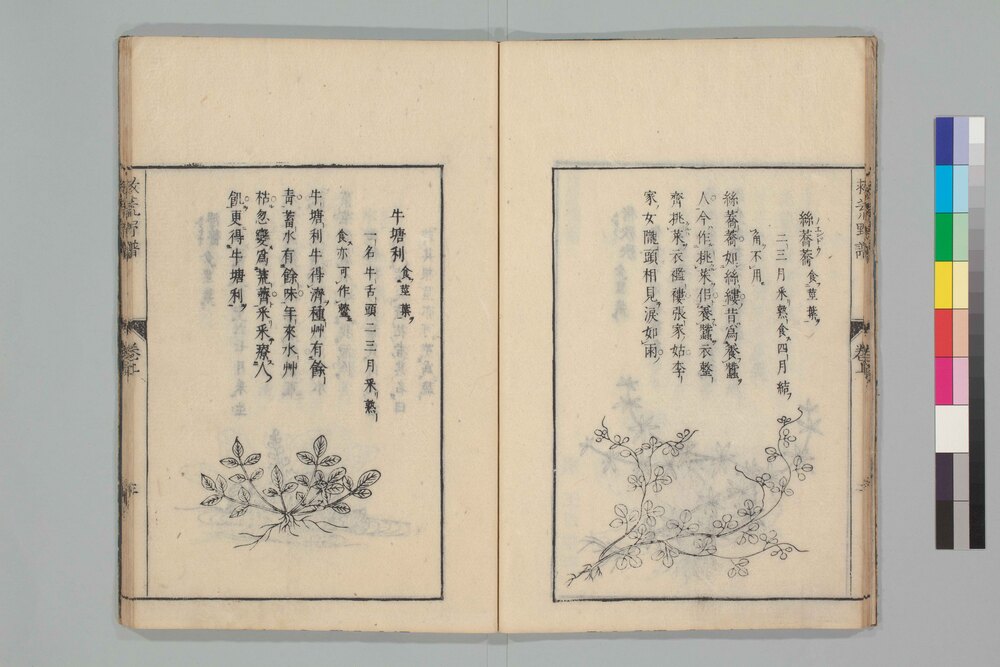 絲蕎蕎 食莖葉
ハエンドウ
二三月采熟食四月結
角不用
絲蕎蕎如絲縷昔爲養蠶
人今作挑菜侶養蠶衣整
齊挑菜衣襤褸張家姑李
家女隴頭相見淚如雨
牛塘利 食莖葉
一名牛舌頭二三月采熟
食亦可作虀
牛塘利牛得濟種艸有餘
青蓄水有餘味年來水艸
枯忽變爲薺采采療人
飢更得牛塘利
救荒野譜
救荒野譜